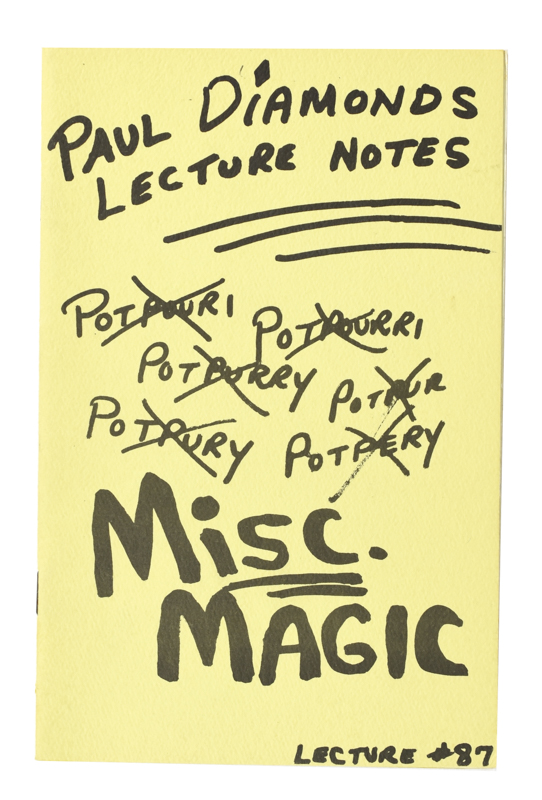 PAUL DiAMONDS
LECTURE NOTES
POTPOURI
POTPOURRI
POTPURRY
POTPUR
POTPURY
POTPERY
MiSC.
MAGIC
LECTURE #87